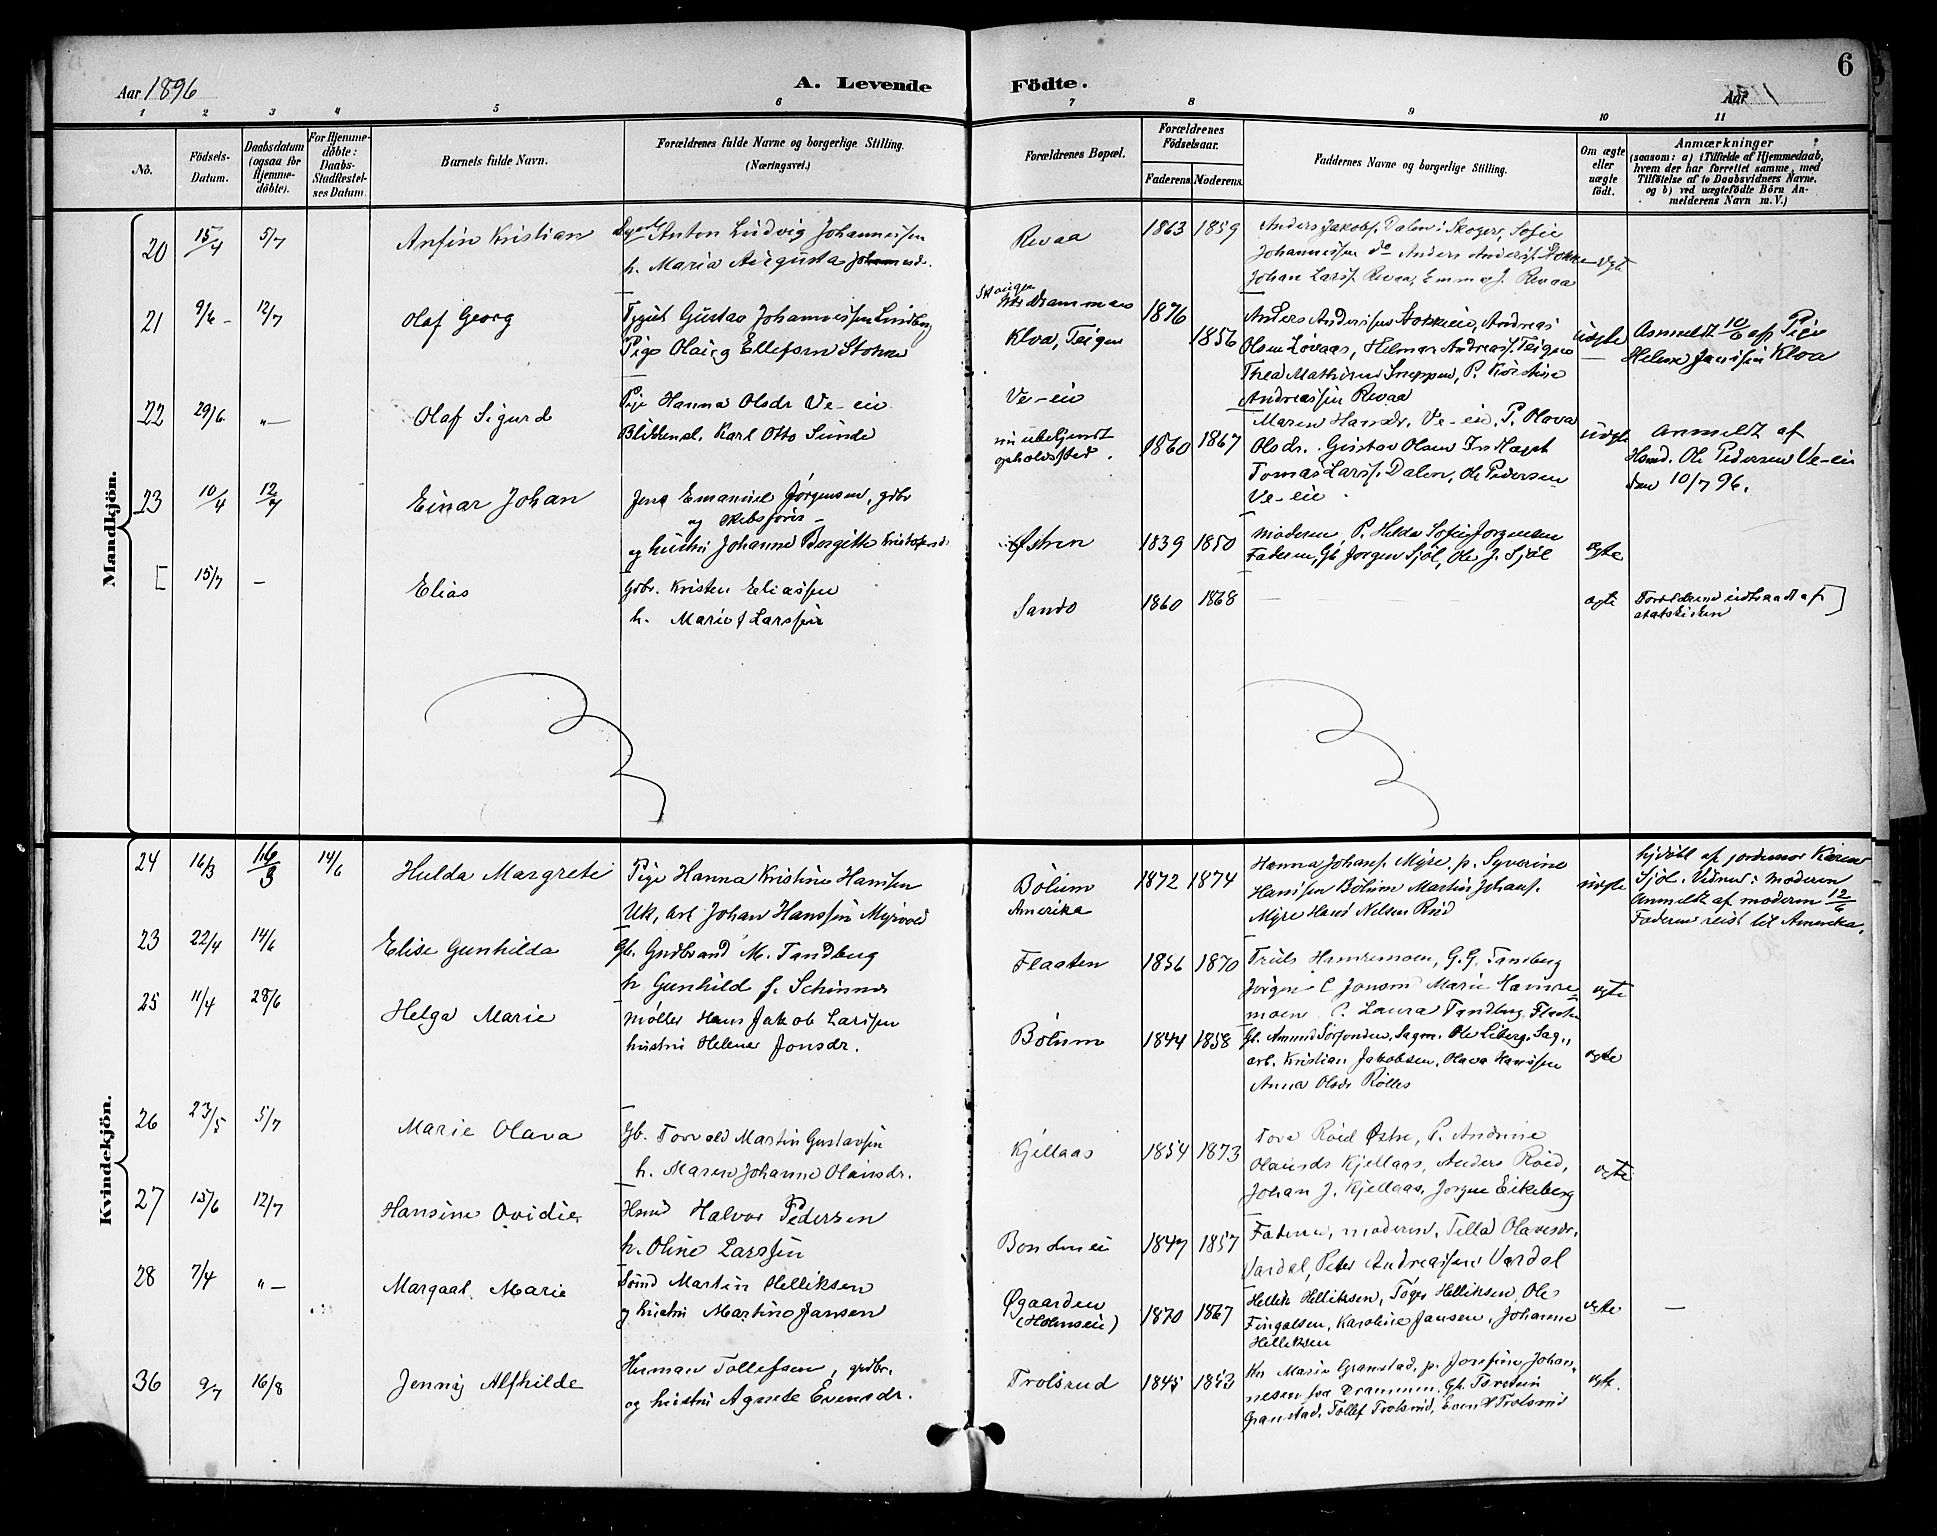 6
Aar 1896
A. Levende Födte.
Aar 1
1 2 3 4 5 6 7 8 9 10 11
No.
Födsels-
Datum.
Daabsdatum
(ogsaa för
Hjemme-
döbte).
For Hjemme-
döbte:
Daabs-
Stadfæstel-
ses Datum.
Barnets fulde Navn.
Forældrenes fulde Navne og borgerlige Stilling.
(Næringsvei.)
Forældrenes Bopæl.
Forældrenes
Födselsaar.
Faderens. Moderens.
Faddernes Navne og borgerlige Stilling.
Om ægte
eller
uægte
födt.
Anmærkninger
(saasom: a) i Tilfælde af Hjemmedaab,
hvem der har forrettet samme, med
Tilföielse af to Daabsvidners Navne,
og b) ved uægtefödte Börn An-
melderens Navn m. V.)
Mandkjön.
20 15/4 5/7 Anfin Kristian
Anton Ludvig Johannessen
h. Maria Augusta
Revaa 1863 1859
Anders Jakobs. Dalen i Skoger, Sofie
Johannessen do Anders Anders. Stokke
Johan Larss. Revaa, Emma J. Revaa
ægte
21 9/6 12/7 Olaf Georg
Gustav Johannessen Lindberg
Pige Olava Ellefsen Stokke
Drammen
Klva, Teigen
1876 1856
Anders Andersen Stokke, Andreas
Olsen Lövaas, Helmer Andreass. Teigen
Thea Mathisen Sneppen, P. Kristine
Andreassen Revaa
uægte
Anmeldt 10/6 af Pige
Helene Jansen Klva
22 29/6 "— Olaf Sigurd
Pige Hanna Olsdr Ve-eie
Blikkensl. Karl Otto Sunde
Ve-eie
nu ubekjendt
opholdssted.
1860 1867
Maren Hansdr. Ve-eie, P. Olava
Olsdr. Gustav Olsen
Tomas Larss. Dalen, Ole Pedersen
Ve-eie.
uægte
Anmeldt af
Hsmd. Ole Pedersen Ve-eie
den 10/7 96.
23 10/4 12/7 Einar Johan
Jens Emanuel Jörgensen, gdbr
og skibsförer
og hustru Johanne Borgitte Kristofersdr
Østren 1839 1850
Moderen, P. Hilda Sofie Jörgensen
Faderen, Gb. Jörgen Sjöl, Ole J. Sjöl
ægte
[ 15/7 — Elias
gdbr. Kristen Eliassen
h. Marie f Larssen
Sando 1860 1868
— — — —
ægte
Forældrene udtraadt af ]
statskirken
Kvindekjön.
24 16/3 16/3 14/6 Hulda Margrete
Pige Hanna Kristine Hanssen
Uk, arb Johan Hanssen Myrvold
Bölum
Amerika
1872 1874
Hanna Johans. Myre, p. Syverine
Hanssen Bölum Martin Johans.
Myre Hans Nilsen Röed
uægte
hjdöbt af jordemor Karen
Sjöl. Vidner: moderen
Anmeldt af moderen 12/6
Faderen reist til Amerika.
23 22/4 14/6 Elise Gunhilda
Gb. Gudbrand M. Tandberg
h Gunhild f. Schinnes
Flaaten 1856 1870
Truls Hamremoen, G.G. Tandberg
Jörgen C Jonsen Marie Hamre-
moen. P. Laura Tandberg. Flaaten
ægte
25 11/4 28/6 Helga Marie
Möller Hans Jakob Larssen
hustru Helene Jonsdr.
Bölum 1844 1858
Gb. Amund Sörfonden, Sagm. Ole Liberg, Sag,,
arb. Kristian Jakobsen, Olava Hanssen
Anna Olsdr Rölles
ægte
26 23/5 5/7 Marie Olava
Gb. Torvald Martin Gustavsen
h. Maren Johanne Olausdr.
Kjellaas 1854 1873
Tova Röed Østre, P. Andrine
Olausdr Kjellaas, Anders Röed,
Johan J. Kjellaas, Jörgen Eikeberg
ægte
27 15/6 12/7 Hansine Ovidie
Hsmd Halvor Pedersen
h. Oline Larssen
Bondeneie 1847 1857
Faderen, moderen, Tilla Olavesdr.
Vardal, Peter Andreassen Vardal
28 7/4 "— Margaat Marie
Martin Helliksen
og hustru Martine Jansen
Øgaarden
(Holmseie)
1870 1867
Hellik Helliksen, Töger Helliksen, Ole
Fingalsen, Karoline Jansen, Johanne
Helliksen
ægte
—
36 9/7 16/8 Jenny Alfhilde
Herman Tollefsen, grdbr.
og hustru Agnete Evensdr.
Trolsrud 1845 1853
Marie Granstad, p. Josefine Johan-
nesen fra Drammen. Gb. Torstein
Granstad, Tollef Trolsrud, Even H Trolsrud
ægte.